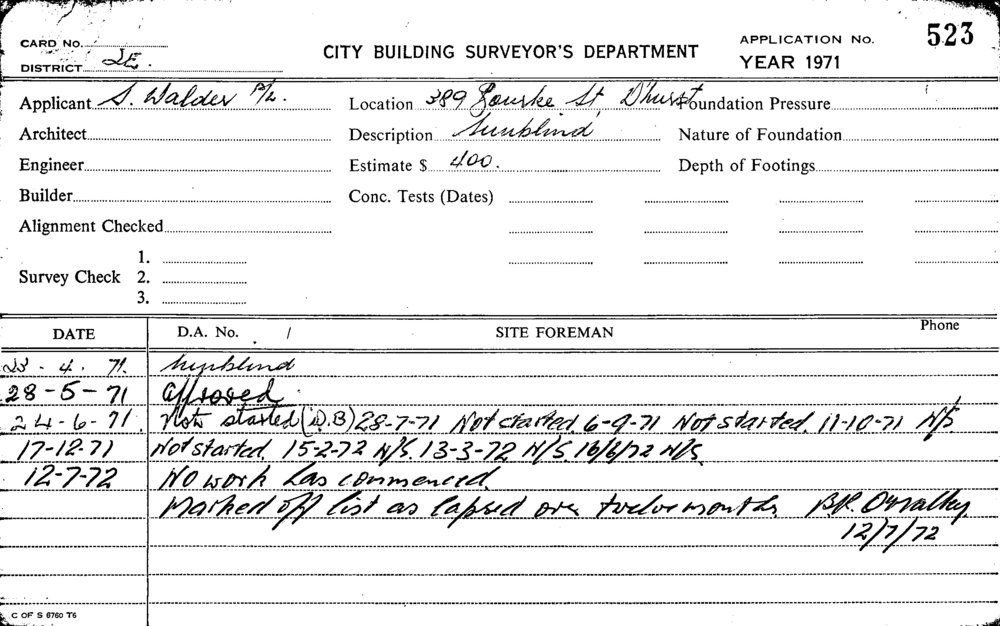 CARD No.
DISTRICT 2E.
CITY BUILDING SURVEYOR'S DEPARTMENT
APPLICATION No. 523
YEAR 1971
Applicant S. Walder P/L. Location 389 Bourke St, D'hurst Foundation Pressure
Architect Description Sunblind Nature of Foundation
Engineer Estimate $ 400. Depth of Footings
Builder Conc. Tests (Dates)
Alignment Checked
1.
Survey Check 2.
3.
DATE D.A. No. / SITE FOREMAN Phone
4. 71. Sunblind
28-5-71 Approved.
24-6-71. Not started (D.B) 28-7-71 Not started. 6-9-71 Not started. 11-10-71 N/S
17-12-71 Not started. 15-2-72 N/S. 13-3-72 N/S. 16/6/72 N/S.
12-7-72 No work has commenced.
Marked off list as lapsed over twelve months. B.R.
12/7/72
C OF S 6760 T6